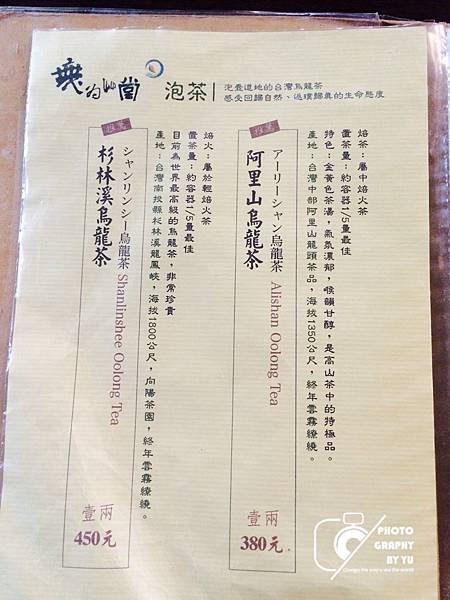 無為堂
泡茶
泡壺道地的台灣烏龍茶
感受回歸自然、返璞歸真的生命態度
推薦
阿里山烏龍茶
アーリーシャン烏龍茶 Alishan Oolong Tea
產地:台灣中部阿里山龍頭茶品,海拔1350公尺,終年雲霧繚繞。
特色:金黃色茶湯,氣氛濃郁,喉韻甘醇,是高山茶中的特極品。
置茶量:約容器1/5量最佳
焙茶:屬中焙火茶
壹兩
380元
推薦
杉林溪烏龍茶
シャンリンシー烏龍茶 Shanlinshee Oolong Tea
產地:台灣南投縣杉林溪龍鳳峽,海拔1800公尺,向陽茶園,終年雲霧繚繞。
目前為世界最高級的烏龍茶,非常珍貴
置茶量:約容器1/5量最佳
焙火:屬於輕焙火茶
壹兩
450元
PHOTO
GRAPHY
BY YU
Change the way u see the world